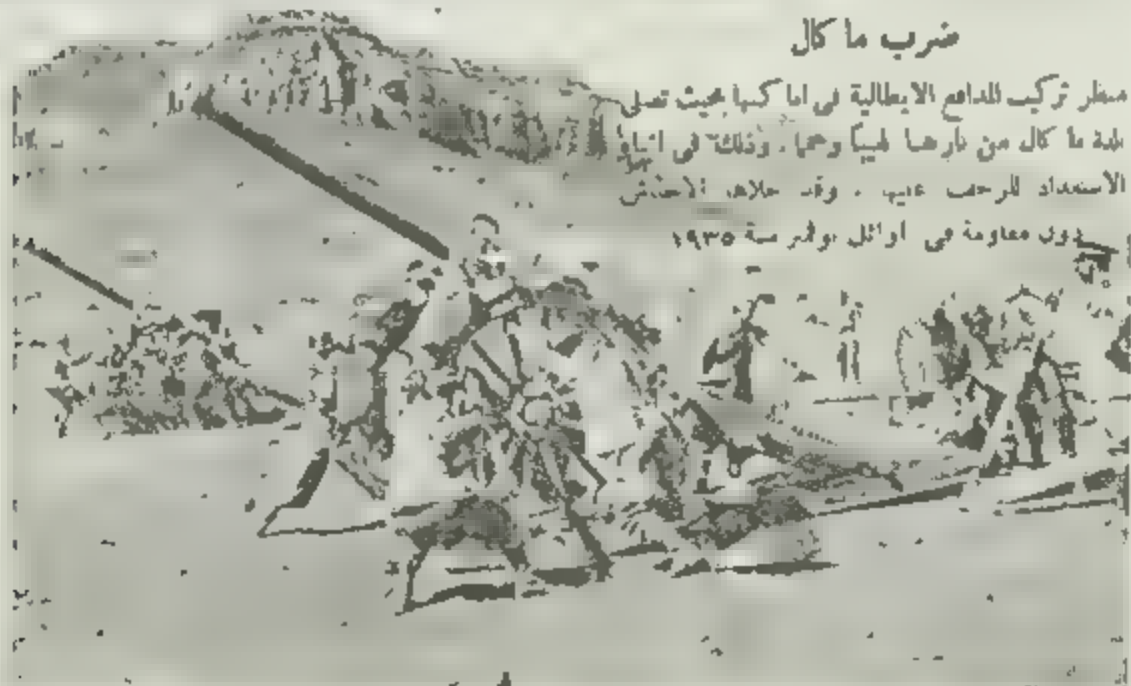 ضرب ما كال
منظر تركيب المدافع الايطالية في اماكنها بحيث تصلي
بلدة ما كال من نارها لهيباً وحمماً . وذلك في اثناء
الاستعداد للزحف عليها . وقد خلاها الاحباش
دون مقاومة في اوائل نوفمبر سنة ١٩٣٥